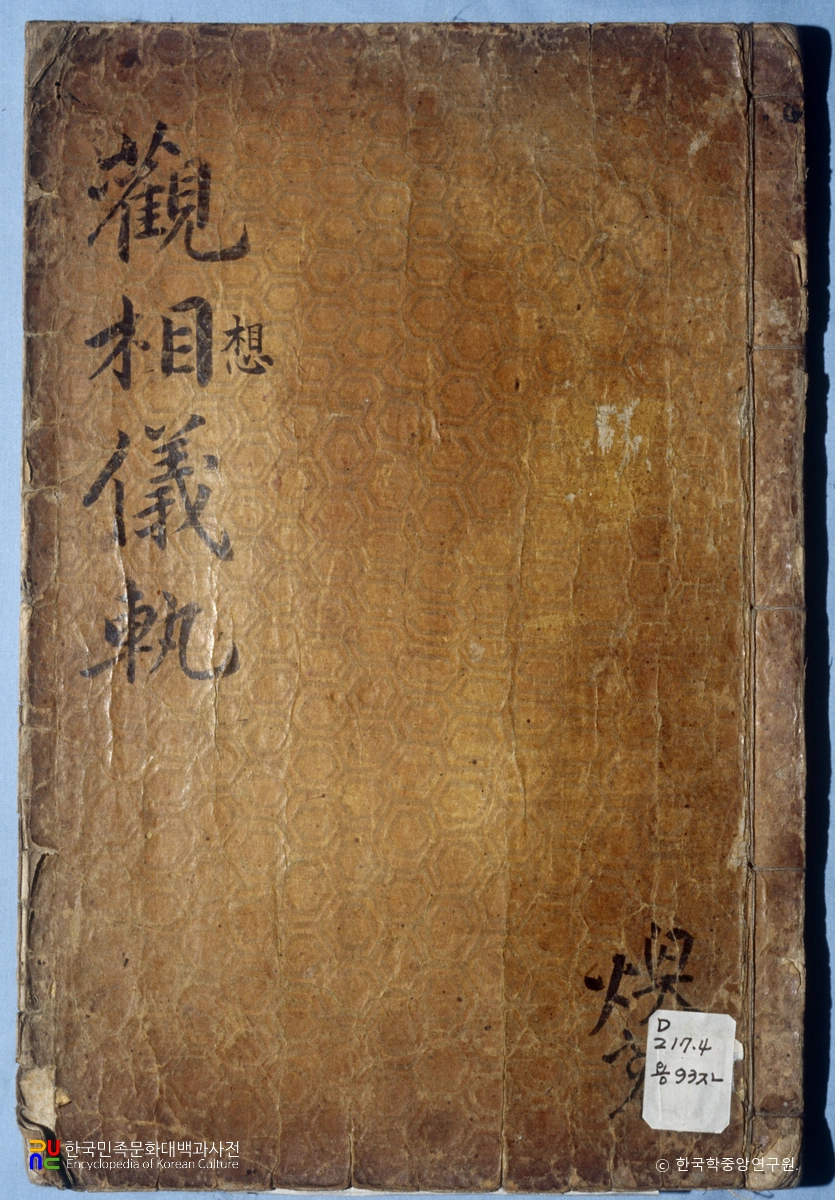 觀相儀軌
想
D
217.4
용93ㅈ
한국민족문화대백과사전
Encyclopedia of Korean Culture
© 한국학중앙연구원